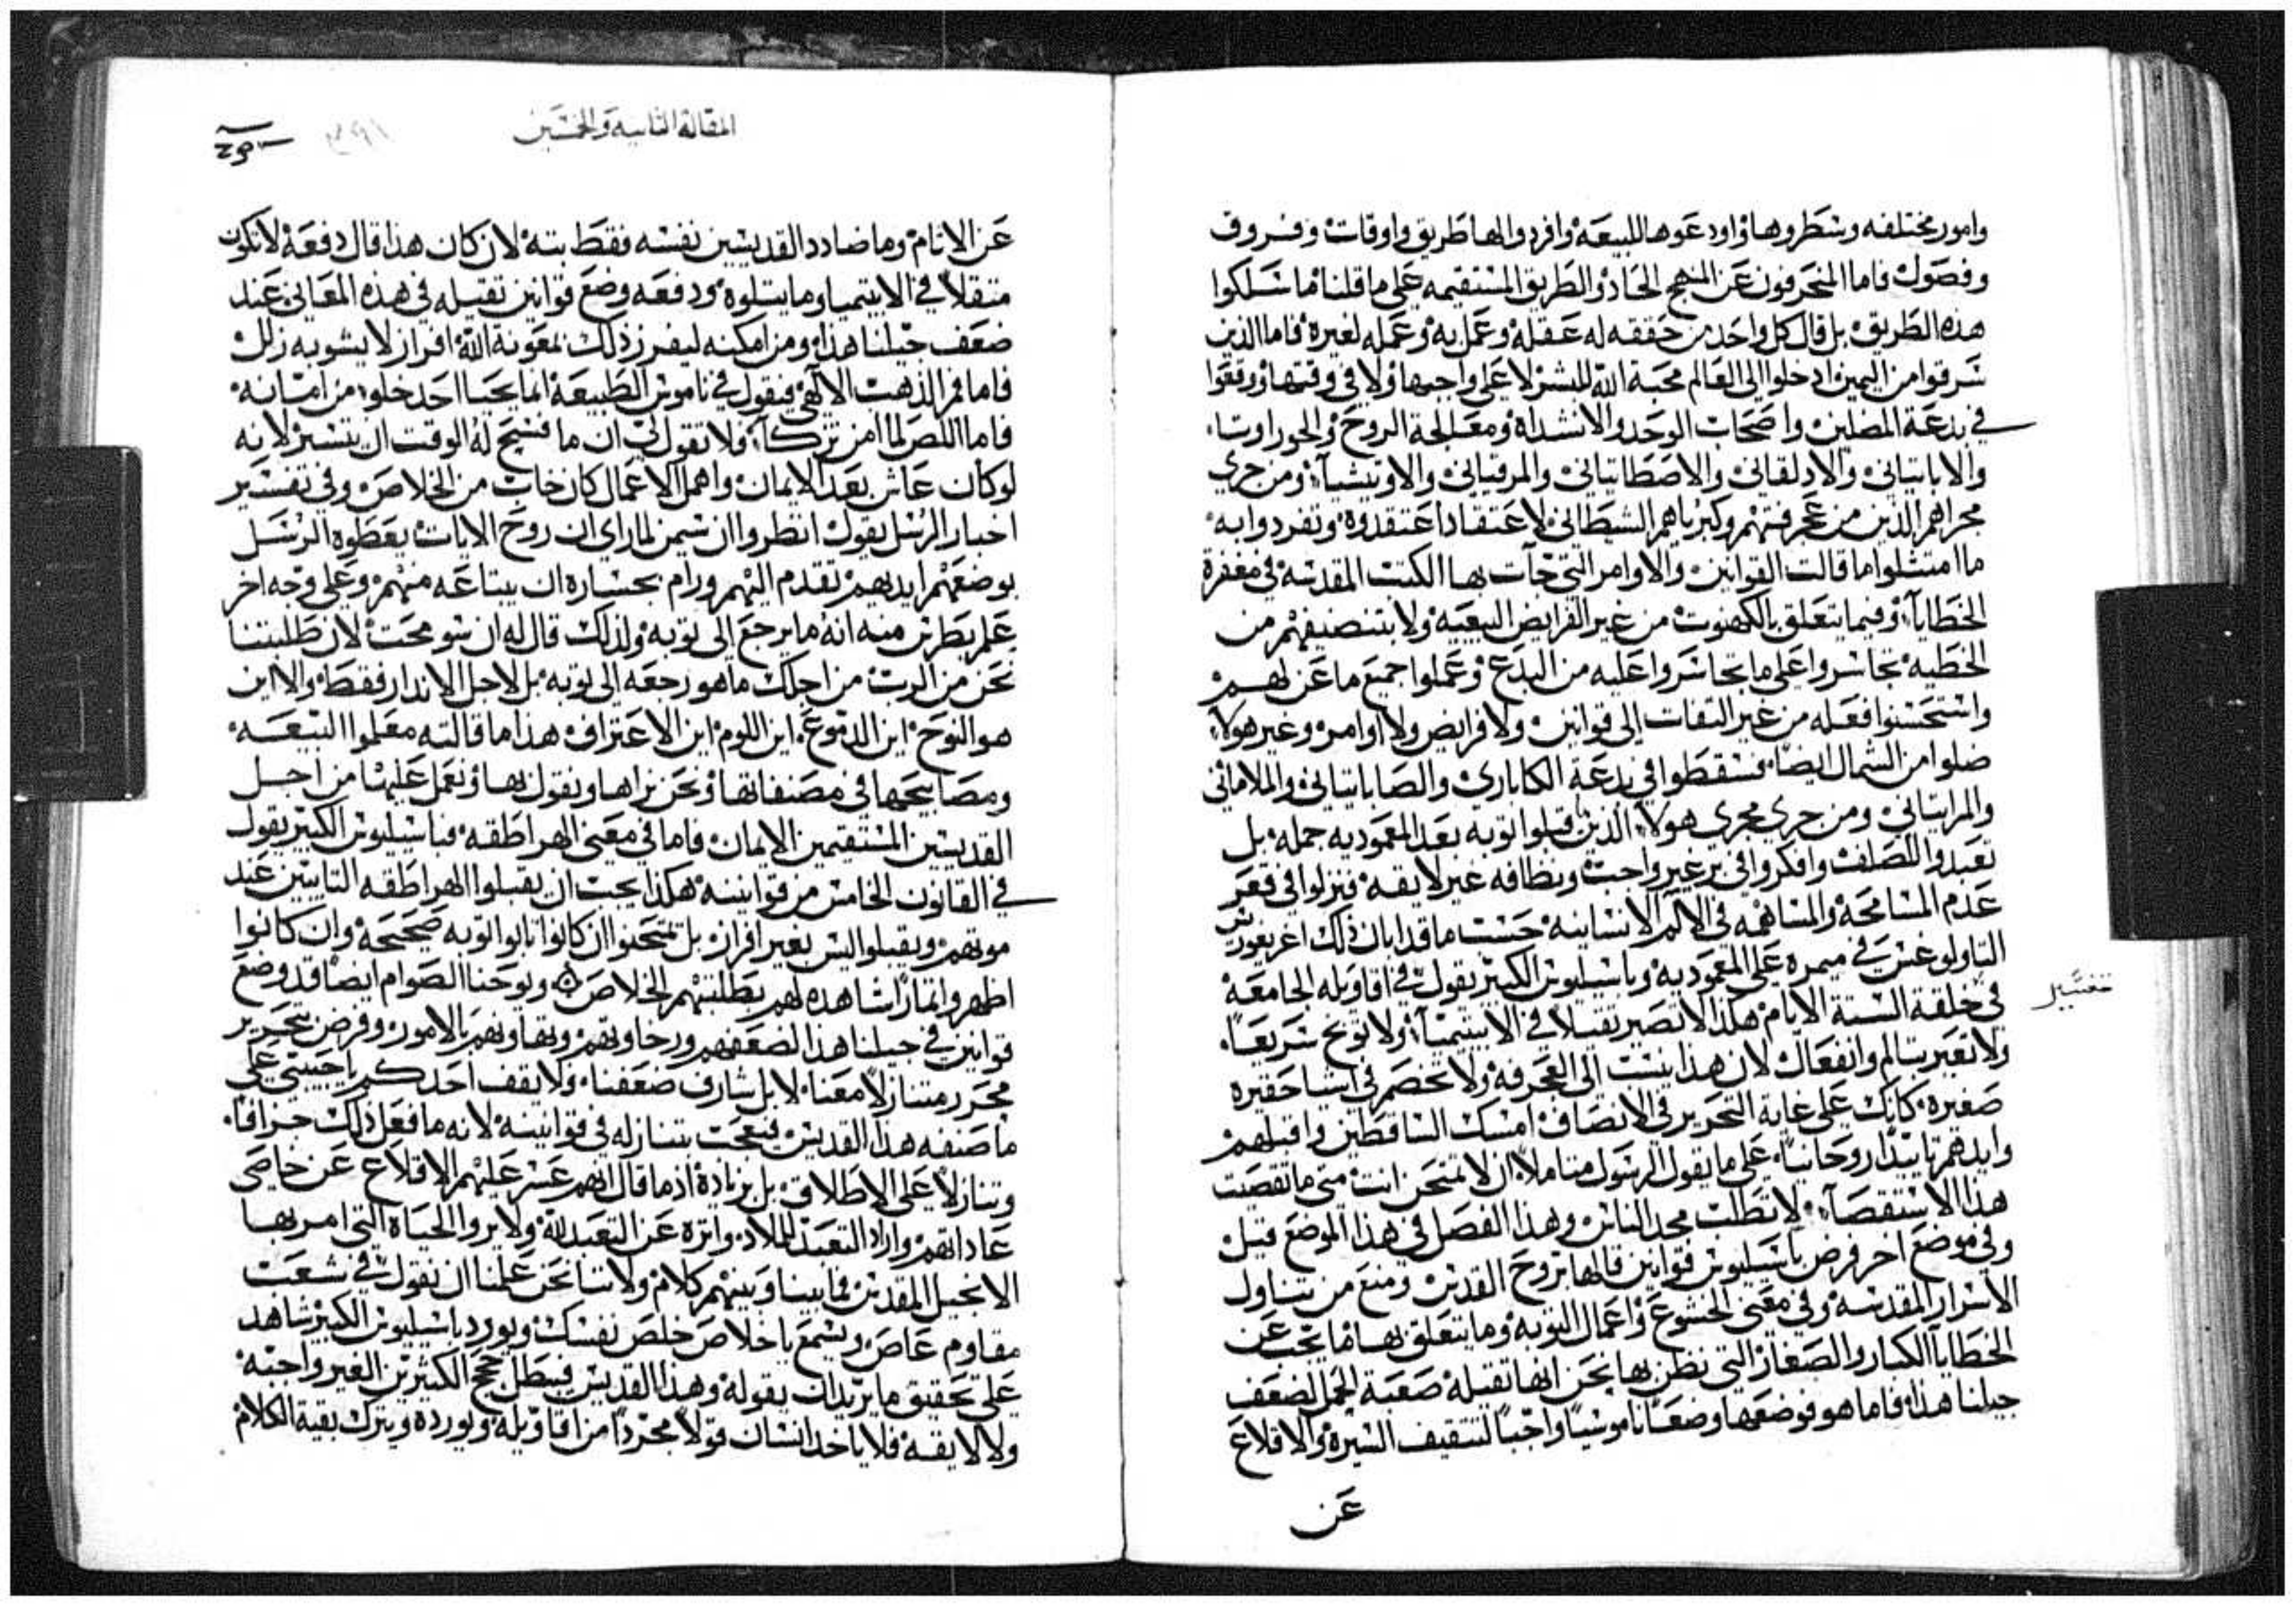 وامور مختلفه وسطروها واودعوها للبيعه وافردوا لها طريق واوقات وفروق
وفصول فاما المنحرفون عن المنهج الحاد والطريق المستقيمه على ما قلنا ما سلكوا
هذه الطريق بل قال كل واحد من حققه له عقله وعمل به وعمله لغيره فاما الذين
شرقوا من اليمين ادخلوا الى العالم محبة الله للبشر لا على واجبها ولا في وقتها ووقعوا
في بدعة المصلين واصحاب الوحد والانشداه ومعالجة الروح والحوراوسا
والاباتياني والادلقاني والاصطاتياني والمرقياني والاوتيشيا ومن جرى
مجراهم الذين من عجرفتهم وكبرياهم الشيطاني لاعتقادا اعتقدوه وتفردوا به
ما امتثلوا ما قالت القوانين والاوامر التي جآت بها الكتب المقدسه في مغفرة
الخطايآ وفيما يتعلق بالكهنوت من غير الفرايض البيعيه ولا بتنضيفهم من
الخطيه تجاسروا على ما تجاسروا عليه من البدع وعملوا جميع ما عن لهم
واستحسنوا فعله من غير التفات الى قوانين ولا فرايض ولا اوامر وغير هولآ
ضلوا من الشمال ايضا فسقطوا في بدعة الكاباري والصاباتياني والملاماني
والمراتياني ومن جرى مجرى هولآ الذين قبلوا توبه بعد المعموديه جمله بل
تعبدوا للصلف وافكروا في بر غير واجب ونظافه غير لايقه فنزلوا في قعر
عدم المسامحه والمساهمه في الالام الانسانيه حسب ما قد ابان ذلك اغريغوريوس
التاولوغس في ميمره على المعموديه وباسيليوس الكبير يقول في اقاويله الجامعه
تفسير
في خلقة الستة الايام هكذا لا تصير ثقيلا في الابيتيميآ ولا توبخ سريعا
ولا تعير بتالم وانفعال لان هذا ينسب الى العجرفه ولا تخصم في اشيا حقيره
صغيره كانك على غاية التحرير في الانصاف امسك الساقطين واقبلهم
وايدهم تاييدا روحانيا على ما يقول الرسول متاملا ان لا تمتحن انت متى ما تقصيت
هذا الاستقصآ لا تطلب مجد الناس وهذا الفصل في هذا الموضع قيل
وفي موضع اخر فرض باسيليوس قوانين قالها بروح القدس ومنع من تناول
الاسرار المقدسه وفي معنى الخشوع واعمال التوبه وما يتعلق بها ما يجب عن
الخطايا الكبار والصغار التي نظن بها نحن انها ثقيله صعبة الحمل لضعف
جيلنا هذا فاما هو فوضعها وضعا ناموسيا واجبا لتثقيف السيره والاقلاع
عن
المقالة الثانيه والخمسين
عن الاثام وما ضادد القديسين نفسه فقط بته لان كان هذا قال دفعه لا تكون
متقلا في الابيتيميا وما يتلوه ودفعه وضع قوانين ثقيله في هذه المعاني عند
ضعف جيلنا هذا ومن امكنه ليفرز ذلك بمعونة الله افراز لا يشوبه زلل
فاما فم الذهب الالهي فيقول في ناموس الطبيعه انما يحيا احد خلوا من امانه
فاما اللص لما امن تزكآ ولا تقول لي ان ما فسح له الوقت ان يتسير لانه
لو كان عاش بعد الايمان واهمل الاعمال كان خاب من الخلاص وفي تفسير
اخبار الرسل يقول انظروا ان سيمن لما راى ان روح الايات يعطوه الرسل
بوضعهم ايديهم تقدم اليهم ورام بجساره ان يبتاعه منهم وعلى وجه اخر
علم بطرس منه انه ما يرجع الى توبه ولذلك قال له ان شو محت لان طلبتنا
نحن من الرب من اجلك ما هو رجعه الى توبه بل لاجل الاندار فقط والا اين
هو النوح اين الدموع اين اللوم اين الاعتراف هذا ما قالته معلموا البيعه
ومصابيحها في مصنفاتها ونحن نراها ونقول بها ونعمل عليها من اجل
القديسين المستقيمين الايمان فاما في معنى الهراطقه فباسيليوس الكبير يقول
في القانون الخامس من قوانينه هكذا يجب ان يقبلوا الهراطقه التايبين عند
موتهم ويقبلوا ليس بغير افراز بل تمتحنوا ان كانوا تابوا توبه صحيحه وان كانوا
اظهروا اثمارا شاهده لهم بطلبتهم الخلاص ويوحنا الصوام ايضا قد وضع
قوانين في جيلنا هذا لضعفهم ورخاوتهم وتهاونهم بالامور وفرض بتحرير
مجرر متنازلا معنا لا بل شارف ضعفنا ولا يقف احدكم يا حبيبي على
ما صنفه هذا القديس فيعجب بتنازله في قوانينه لانه ما فعل ذلك جزافا
وتنازلا على الاطلاق بل بزيادة اذ ما قال انهم عسر عليهم الاقلاع عن خاصي
عاداتهم واراد التعبد للملاد واثره عن التعبد لله ولا يروا الحياة التي امر بها
الانجيل المقدس فما بيننا وبينهم كلام ولاننا نحن علمنا ان نقول في شعب
مقاوم عاص ويسمع يا خلاص خلص نفسك ويورد باسيليوس الكبير شاهد
على تحقيق ما يريد ان يقوله وهذا القديس فيبطل حجج الكثيرين الغير واجبه
ولا لايقه فلا ياخد انسان قولا مجردا من اقاويله ويورده ويترك بقية الكلام